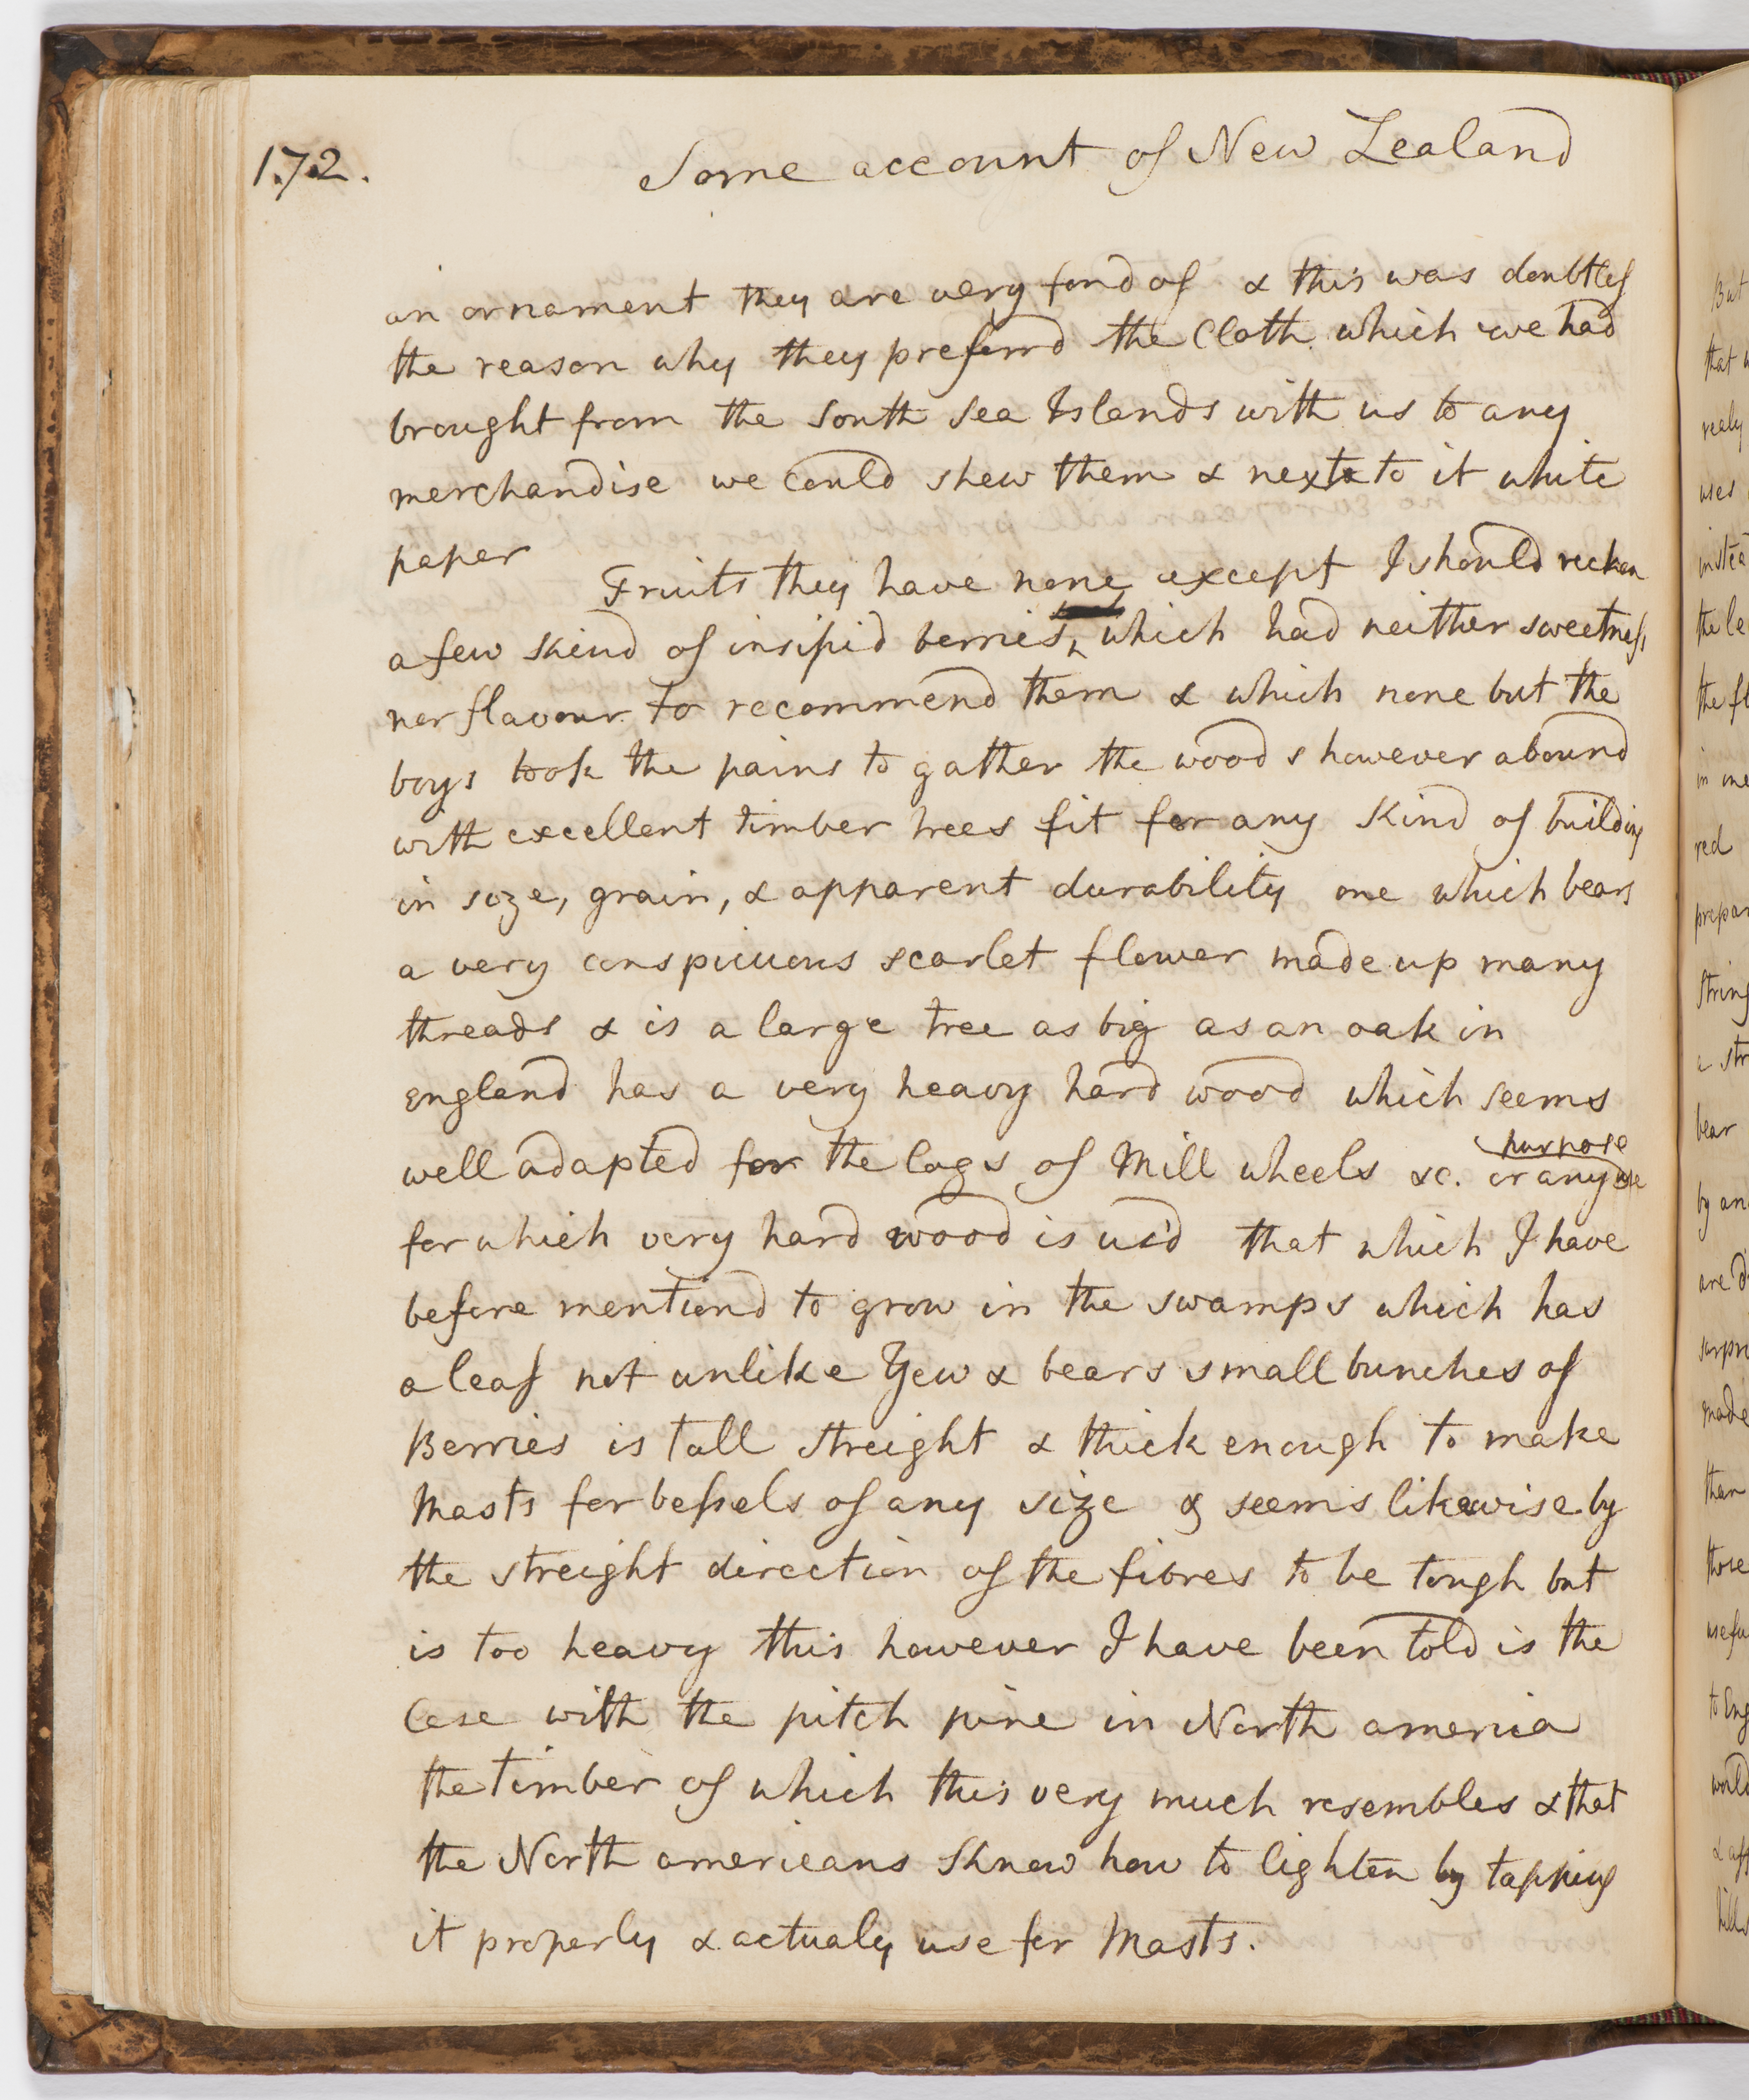 172.
Some account of New Zealand
an ornament they are very fond of & this was doubtless
the reason why they preferrd the Cloth which we had
brought from the South Sea Islands with us to any
merchandise we could shew them & next to it white
paper
Fruits they have none except I should reckon
a few Kind of insipid berries which had neither sweetness
nor flavour to recommend them & which none but the
boys took the pains to gather the woods however abound
with excellent timber trees fit for any Kind of building
in size, grain, & apparent durability one which bears
a very conspicuous scarlet flower made up many
threads & is a large tree as big as an oak in
england has a very heavy hard wood which seems
purpose
well adapted for the Cogs of Mill wheels &c. or any use
for which very hard wood is us'd that which I have
before mentiond to grow in the swamps which has
a leaf not unlike Yew & bears small bunches of
Berries is tall streight & thick enough to make
Masts for vessels of any size & seems likewise by
the streight direction of the fibres to be tough but
is too heavy this however I have been told is the
Case with the pitch pine in North america
the timber of which this very much resembles & that
the North americans Know how to lighten by tapping
it properly & actualy use for Masts.
But
that
realy
uses
the le
the fl
red
prepar
string
a str
bear
by an
are d
surpri
made
than
those
usefu
to Eng